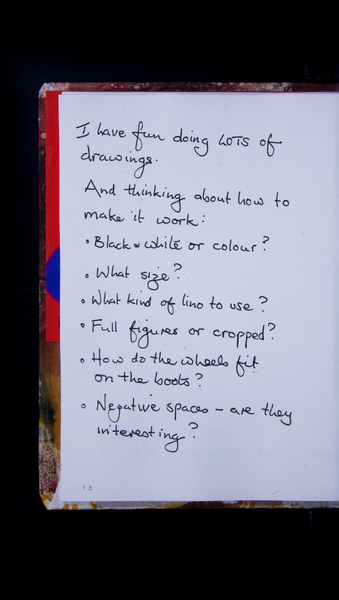 I have fun doing LOTS of
drawings.
And thinking about how to
make it work:
• Black & white or colour?
• What size?
• What kind of lino to use?
• Full figures or cropped?
• How do the wheels fit
on the boots?
• Negative spaces – are they
interesting?